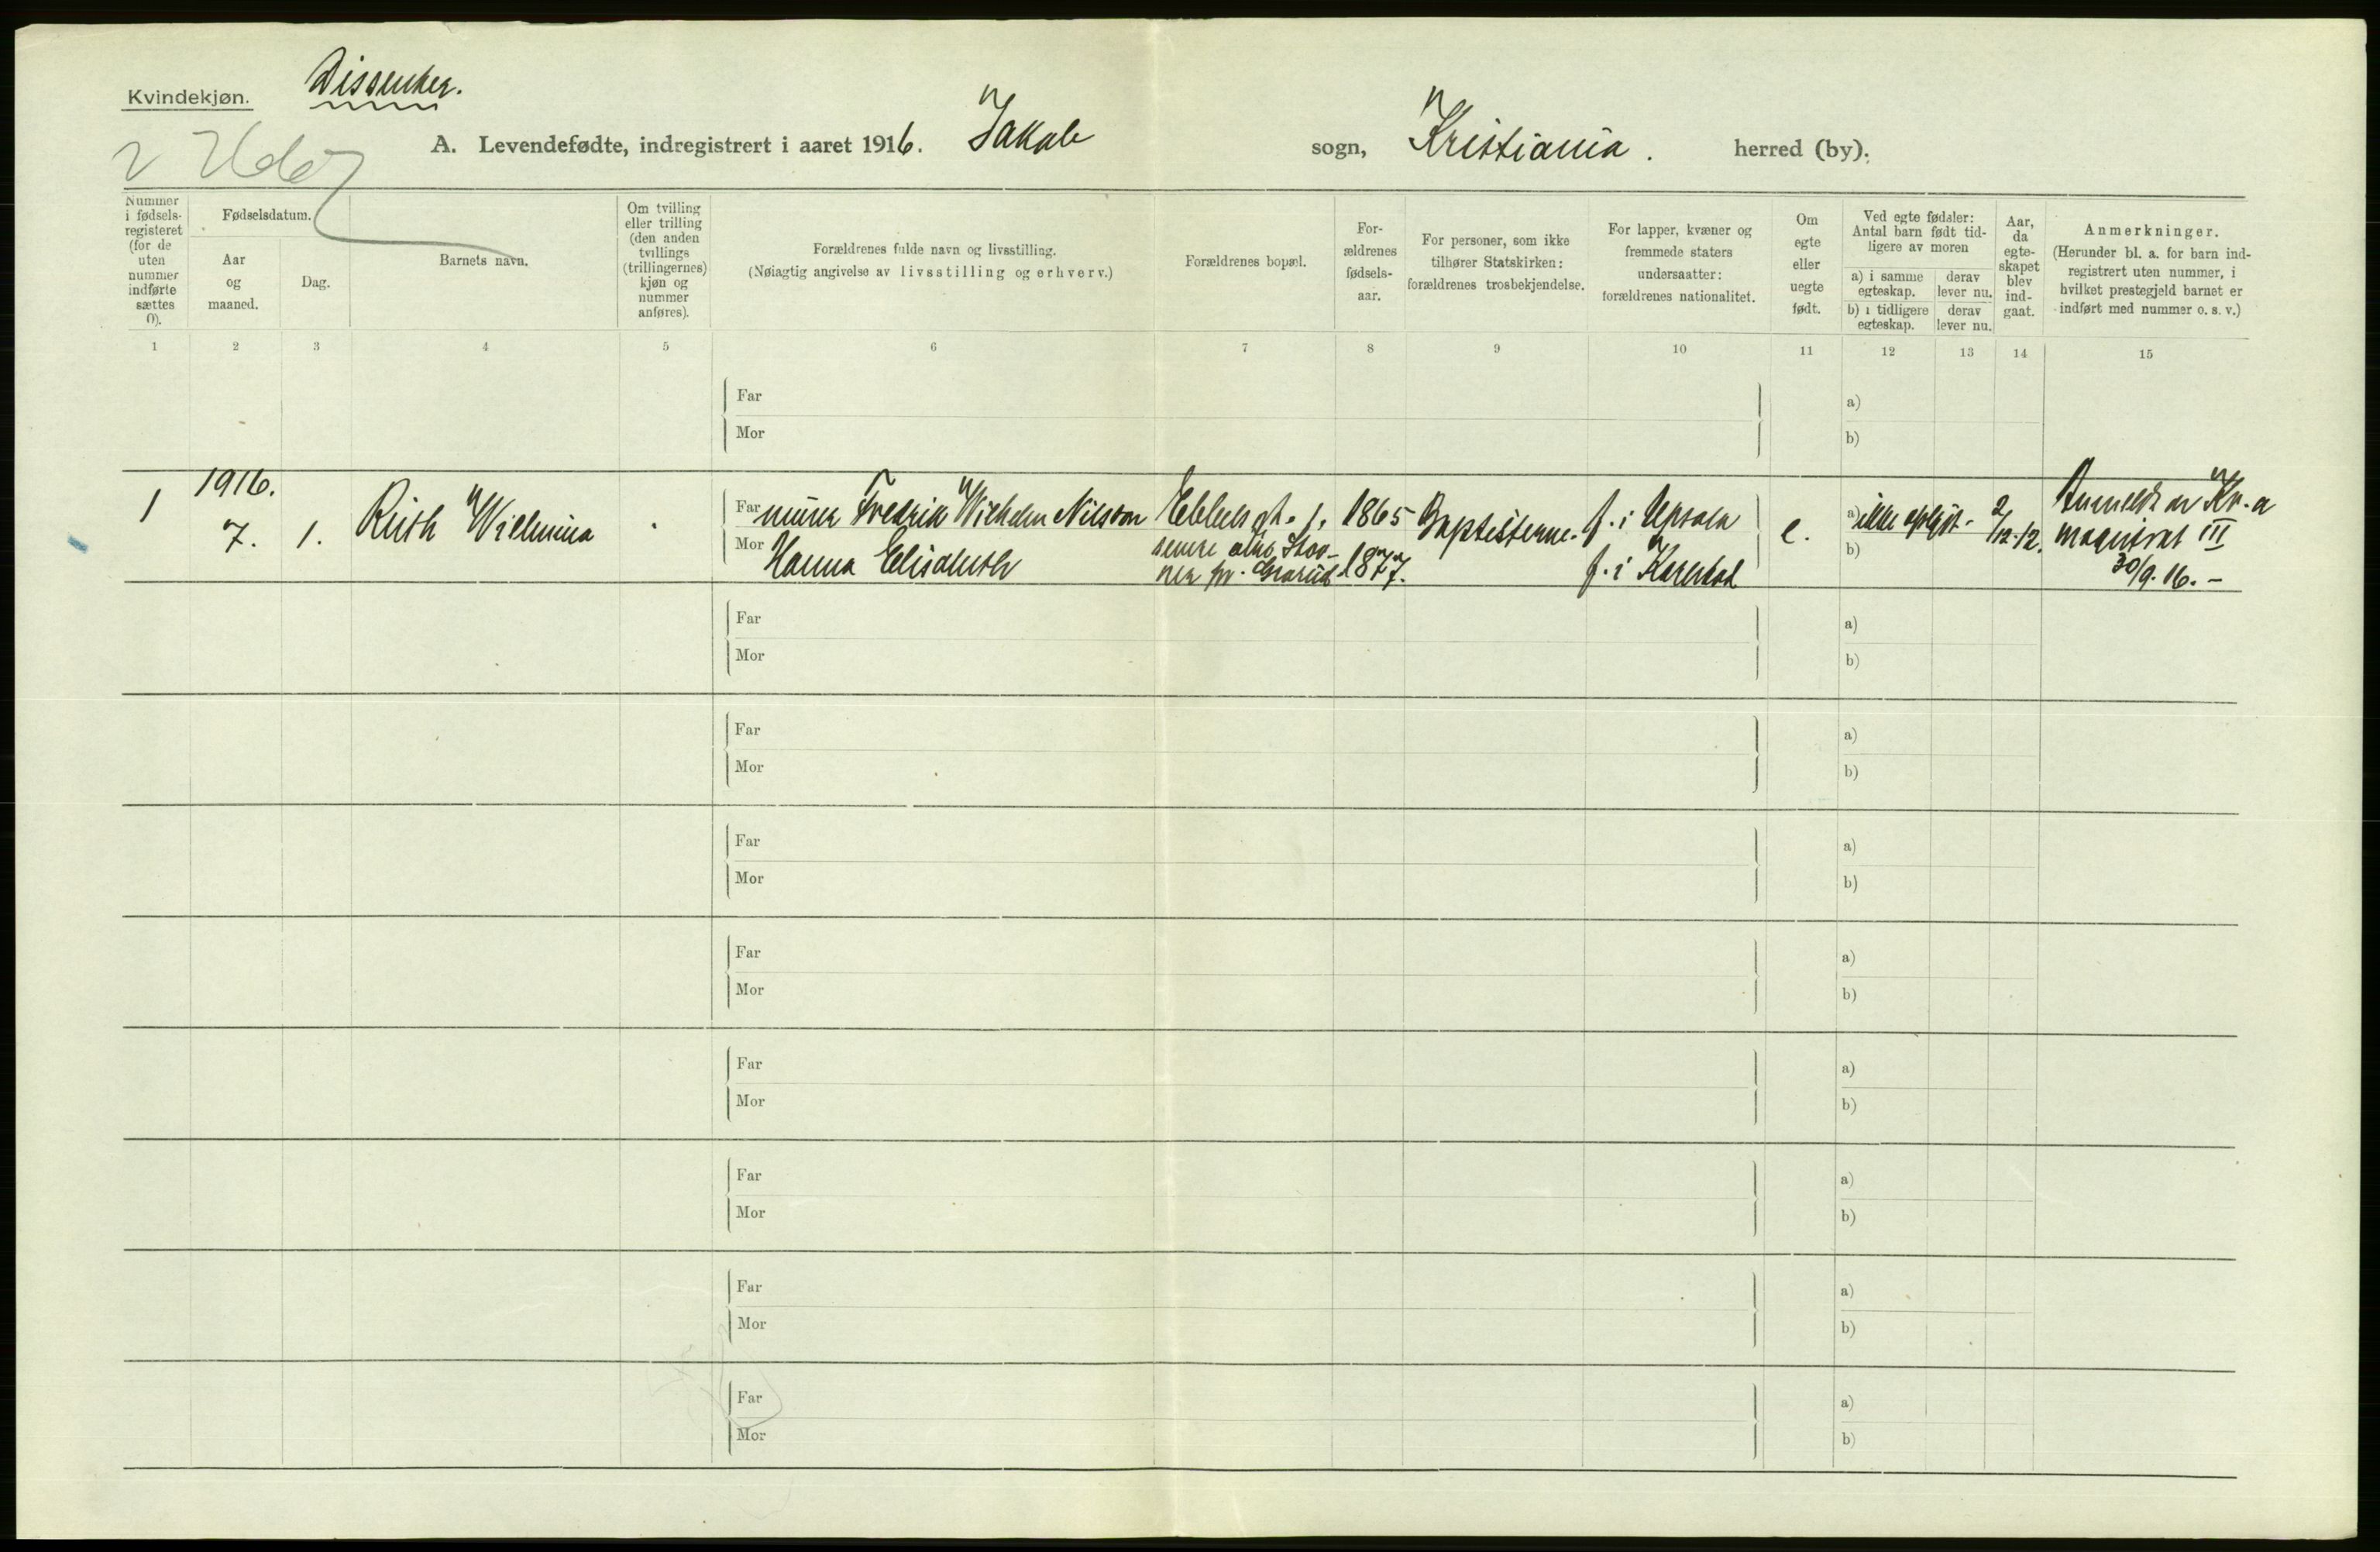 Kvindekjøn.
Dissenter.
A. Levendefødte, indregistrert i aaret 1916. Jakob sogn, Kristiania. herred (by).
Nummer i fødsels-registeret (for de uten nummer indførte sættes 0).
Fødselsdatum.
Aar og maaned.
Dag.
Barnets navn.
Om tvilling eller trilling (den anden tvillings (trillingernes) kjøn og nummer anføres).
Forældrenes fulde navn og livsstilling.
(Nøiagtig angivelse av livsstilling og erhverv.)
Forældrenes bopæl.
For-ældrenes fødsels-aar.
For personer, som ikke tilhører Statskirken: forældrenes trosbekjendelse.
For lapper, kvæner og fremmede staters undersaatter: forældrenes nationalitet.
Om egte eller uegte født.
Ved egte fødsler: Antal barn født tid-ligere av moren
a) i samme egteskap.
derav lever nu.
b) i tidligere egteskap.
derav lever nu.
Aar, da egte-skapet blev ind-gaat.
Anmerkninger.
(Herunder bl. a. for barn ind-registrert uten nummer, i hvilket prestegjeld barnet er indført med nummer o. s. v.)
1 2 3 4 5 6 7 8 9 10 11 12 13 14 15
Far a)
Mor b)
1 1916. 7. 1. Ruth Wilhelmina
Far murer Fredrik Wilhelm Nilsson Ebbells gt. 1. 1865 Baptisterne. f. i Upsala e. a) ikke oplyst. 2/12.12. Anmeldt av Kr.a
Mor Hanna Elisabeth senere 1877. f. i Karlstad b) magistrat III
30/9.16. -
Far a)
Mor b)
Far a)
Mor b)
Far a)
Mor b)
Far a)
Mor b)
Far a)
Mor b)
Far a)
Mor b)
Far a)
Mor b)
Far a)
Mor b)